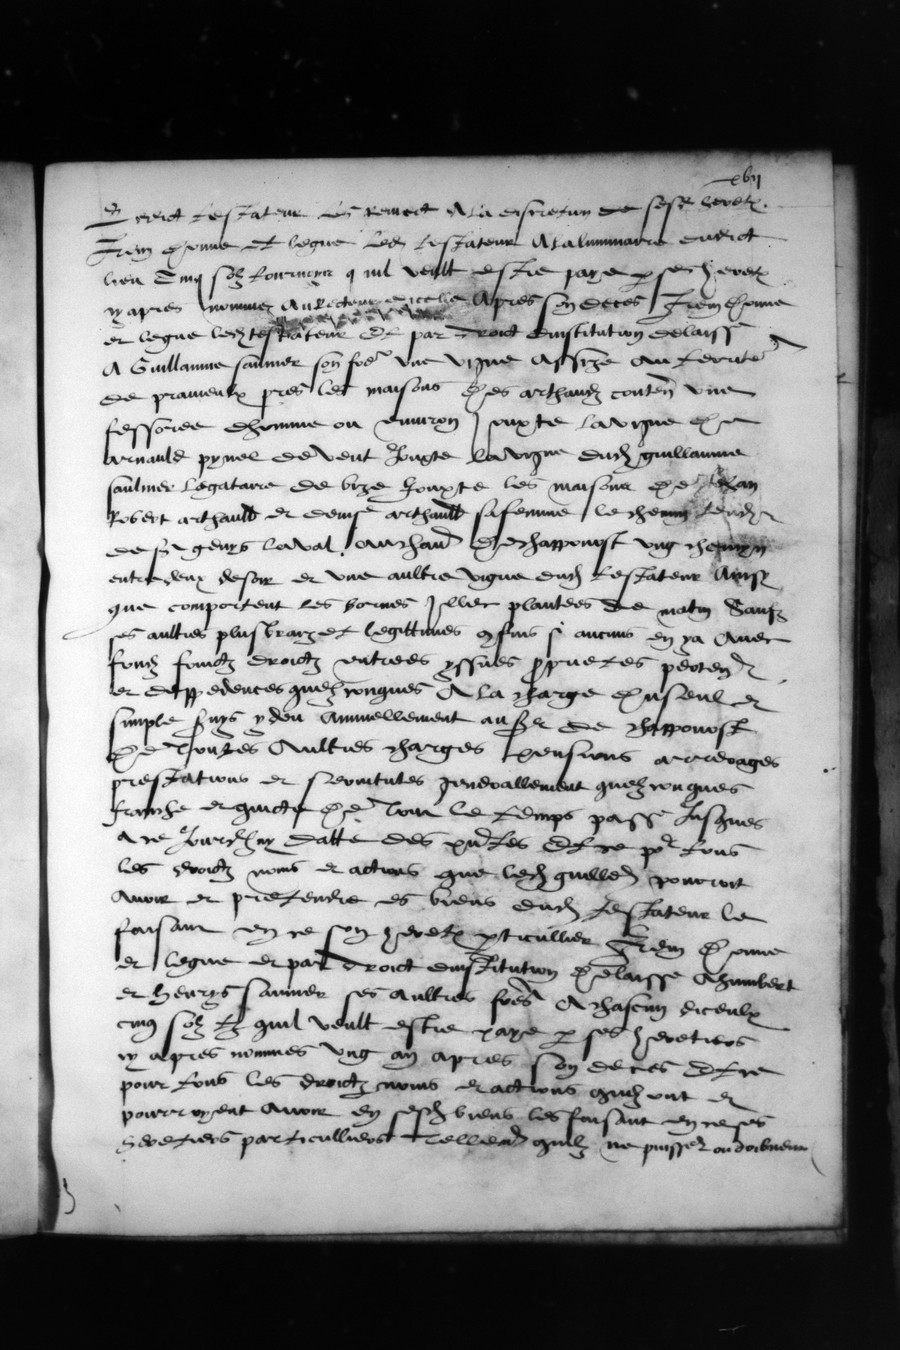 xvii
ledict testateur les remect a la discretion de sesd heretz.
Item donne et legue ledt testateur a la luminaire dudict
lieu cinq solz tournoys quil veult estre paye p ses heretz
cy apres nommez au recteur dicelle apres son deces Item donne
et legue ledt testateur et par droict dinstitution delaisse
a Guillaume saulnier son fre une vigne assize au territe
de pramenlx pres les maisons des arthaudz conten une
fessoree dhomme ou environ jouxte la vigne de
arnauld pynel de vent Jouxte la vigne dud guillaume
saulnier legataire de bize Jouxte les maisons de Jehan
Robert arthauld et denise arthauld sa femme le chemin tend
de st genys laval a de chapponost ung chemyn
entre deux de soir et une aultre vigne dud testateur ainsy
que comportent les bornes illec plantees de matin saufz
ses aultres plus vrayz et legittimes confins si aucuns en ya avec
fondz fruictz droictz entrees yssues proprietes
et deppedences quelzconques a la charge dun seul et
simple sens deu annuellement au sr de chapponost
de toutes aultres charges pensions arreyages
prestations et servitutes generallement quelzconques
franche et quicte de tout le temps passe Jusques
a ce Jourdhuy datte des pntes Et ce pr tous
les droictz noms et actions que led guille pourroit
avoir et pretendre es biens dud testateur le
faisant en ce son heretz particullier Item donne
et legue et par droict dinstitution delaisse a humbert
et henrys saulnier ses aultres freres a chascun diceulx
cinq solz tz quil veult estre paye p ses heretiers
cy apres nommes ung an apres son deces Et ce
pour tous les droictz noms et actions quilz ont et
pourroyent avoir en sesd biens les faisant en ce ses
heretiers particulliers tellement quilz ne puisset ou doibvent